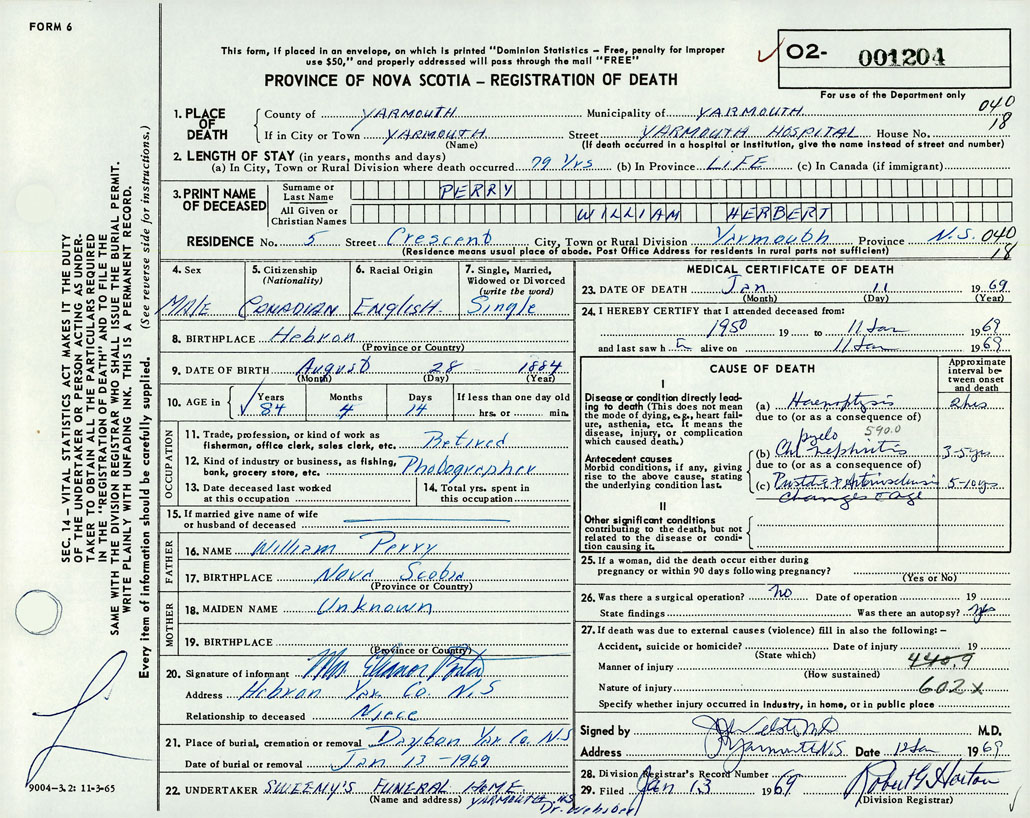 FORM 6
This form, if placed in an envelope, on which is printed "Dominion Statistics – Free, penalty for improper
use $50," and properly addressed will pass through the mail "FREE"
PROVINCE OF NOVA SCOTIA – REGISTRATION OF DEATH
O2- 001204
For use of the Department only
040
18
1. PLACE OF DEATH
County of YARMOUTH Municipality of YARMOUTH
If in City or Town YARMOUTH Street YARMOUTH HOSPITAL House No.
(Name) (If death occurred in a hospital or institution, give the name instead of street and number)
2. LENGTH OF STAY (in years, months and days)
(a) In City, Town or Rural Division where death occurred 79 Yrs (b) In Province LIFE (c) In Canada (if immigrant)
3. PRINT NAME OF DECEASED
Surname or Last Name PERRY
All Given or Christian Names WILLIAM HERBERT
RESIDENCE No. 5 Street Crescent City, Town or Rural Division Yarmouth Province N.S. 040
(Residence means usual place of abode. Post Office Address for residents in rural parts not sufficient) 18
4. Sex
MALE
5. Citizenship
(Nationality)
CANADIAN
6. Racial Origin
ENGLISH
7. Single, Married,
Widowed or Divorced
(write the word)
Single
8. BIRTHPLACE Hebron
(Province or Country)
9. DATE OF BIRTH August 28 1884
(Month) (Day) (Year)
10. AGE in Years Months Days If less than one day old
84 4 14 hrs. or min.
OCCUPATION
11. Trade, profession, or kind of work as
fisherman, office clerk, sales clerk, etc. Retired
12. Kind of industry or business, as fishing,
bank, grocery store, etc. Photographer
13. Date deceased last worked
at this occupation
14. Total yrs. spent in
this occupation
15. If married give name of wife
or husband of deceased
FATHER
16. NAME William Perry
17. BIRTHPLACE Nova Scotia
(Province or Country)
MOTHER
18. MAIDEN NAME Unknown
19. BIRTHPLACE
(Province or Country)
20. Signature of informant Mrs. Eleanor Porter
Address Hebron Yar. Co. N.S
Relationship to deceased Niece
21. Place of burial, cremation or removal Yar Co. N.S
Date of burial or removal Jan 13 - 1969
22. UNDERTAKER SWEENY'S FUNERAL HOME
(Name and address) YARMOUTH N.S
Dr. Webster
MEDICAL CERTIFICATE OF DEATH
23. DATE OF DEATH Jan 11 1969
(Month) (Day) (Year)
24. I HEREBY CERTIFY that I attended deceased from:
1950 19 to 11 Jan 1969
and last saw h alive on 11 Jan 1969
CAUSE OF DEATH
Approximate interval between onset and death
I
Disease or condition directly leading to death (This does not mean the mode of dying, e.g., heart failure, asthenia, etc. It means the disease, injury, or complication which caused death.)
(a) Haemoptysis 2 hrs
due to (or as a consequence of)
590.0
Antecedent causes
Morbid conditions, if any, giving rise to the above cause, stating the underlying condition last.
pyelo
(b) Chr nephritis 3-5 yrs
due to (or as a consequence of)
(c) 5-10 yrs
changes age
II
Other significant conditions
contributing to the death, but not related to the disease or condition causing it.
25. If a woman, did the death occur either during
pregnancy or within 90 days following pregnancy?
(Yes or No)
26. Was there a surgical operation? no Date of operation 19
State findings Was there an autopsy?
27. If death was due to external causes (violence) fill in also the following: –
Accident, suicide or homicide? Date of injury 19
(State which)
Manner of injury 440.9
(How sustained)
Nature of injury 602x
Specify whether injury occurred in industry, in home, or in public place
Signed by M.D.
Address Yarmouth N.S. Date 12 Jan 1969
28. Division Registrar's Record Number
29. Filed Jan 13 1969 Robert G Horton
(Division Registrar)
SEC. 14 – VITAL STATISTICS ACT MAKES IT THE DUTY
OF THE UNDERTAKER OR PERSON ACTING AS UNDER-
TAKER TO OBTAIN ALL THE PARTICULARS REQUIRED
IN THE "REGISTRATION OF DEATH" AND TO FILE THE
SAME WITH THE DIVISION REGISTRAR WHO SHALL ISSUE THE BURIAL PERMIT.
WRITE PLAINLY WITH UNFADING INK. THIS IS A PERMANENT RECORD.
Every item of information should be carefully supplied. (See reverse side for instructions.)
9004–3.2: 11-3-65